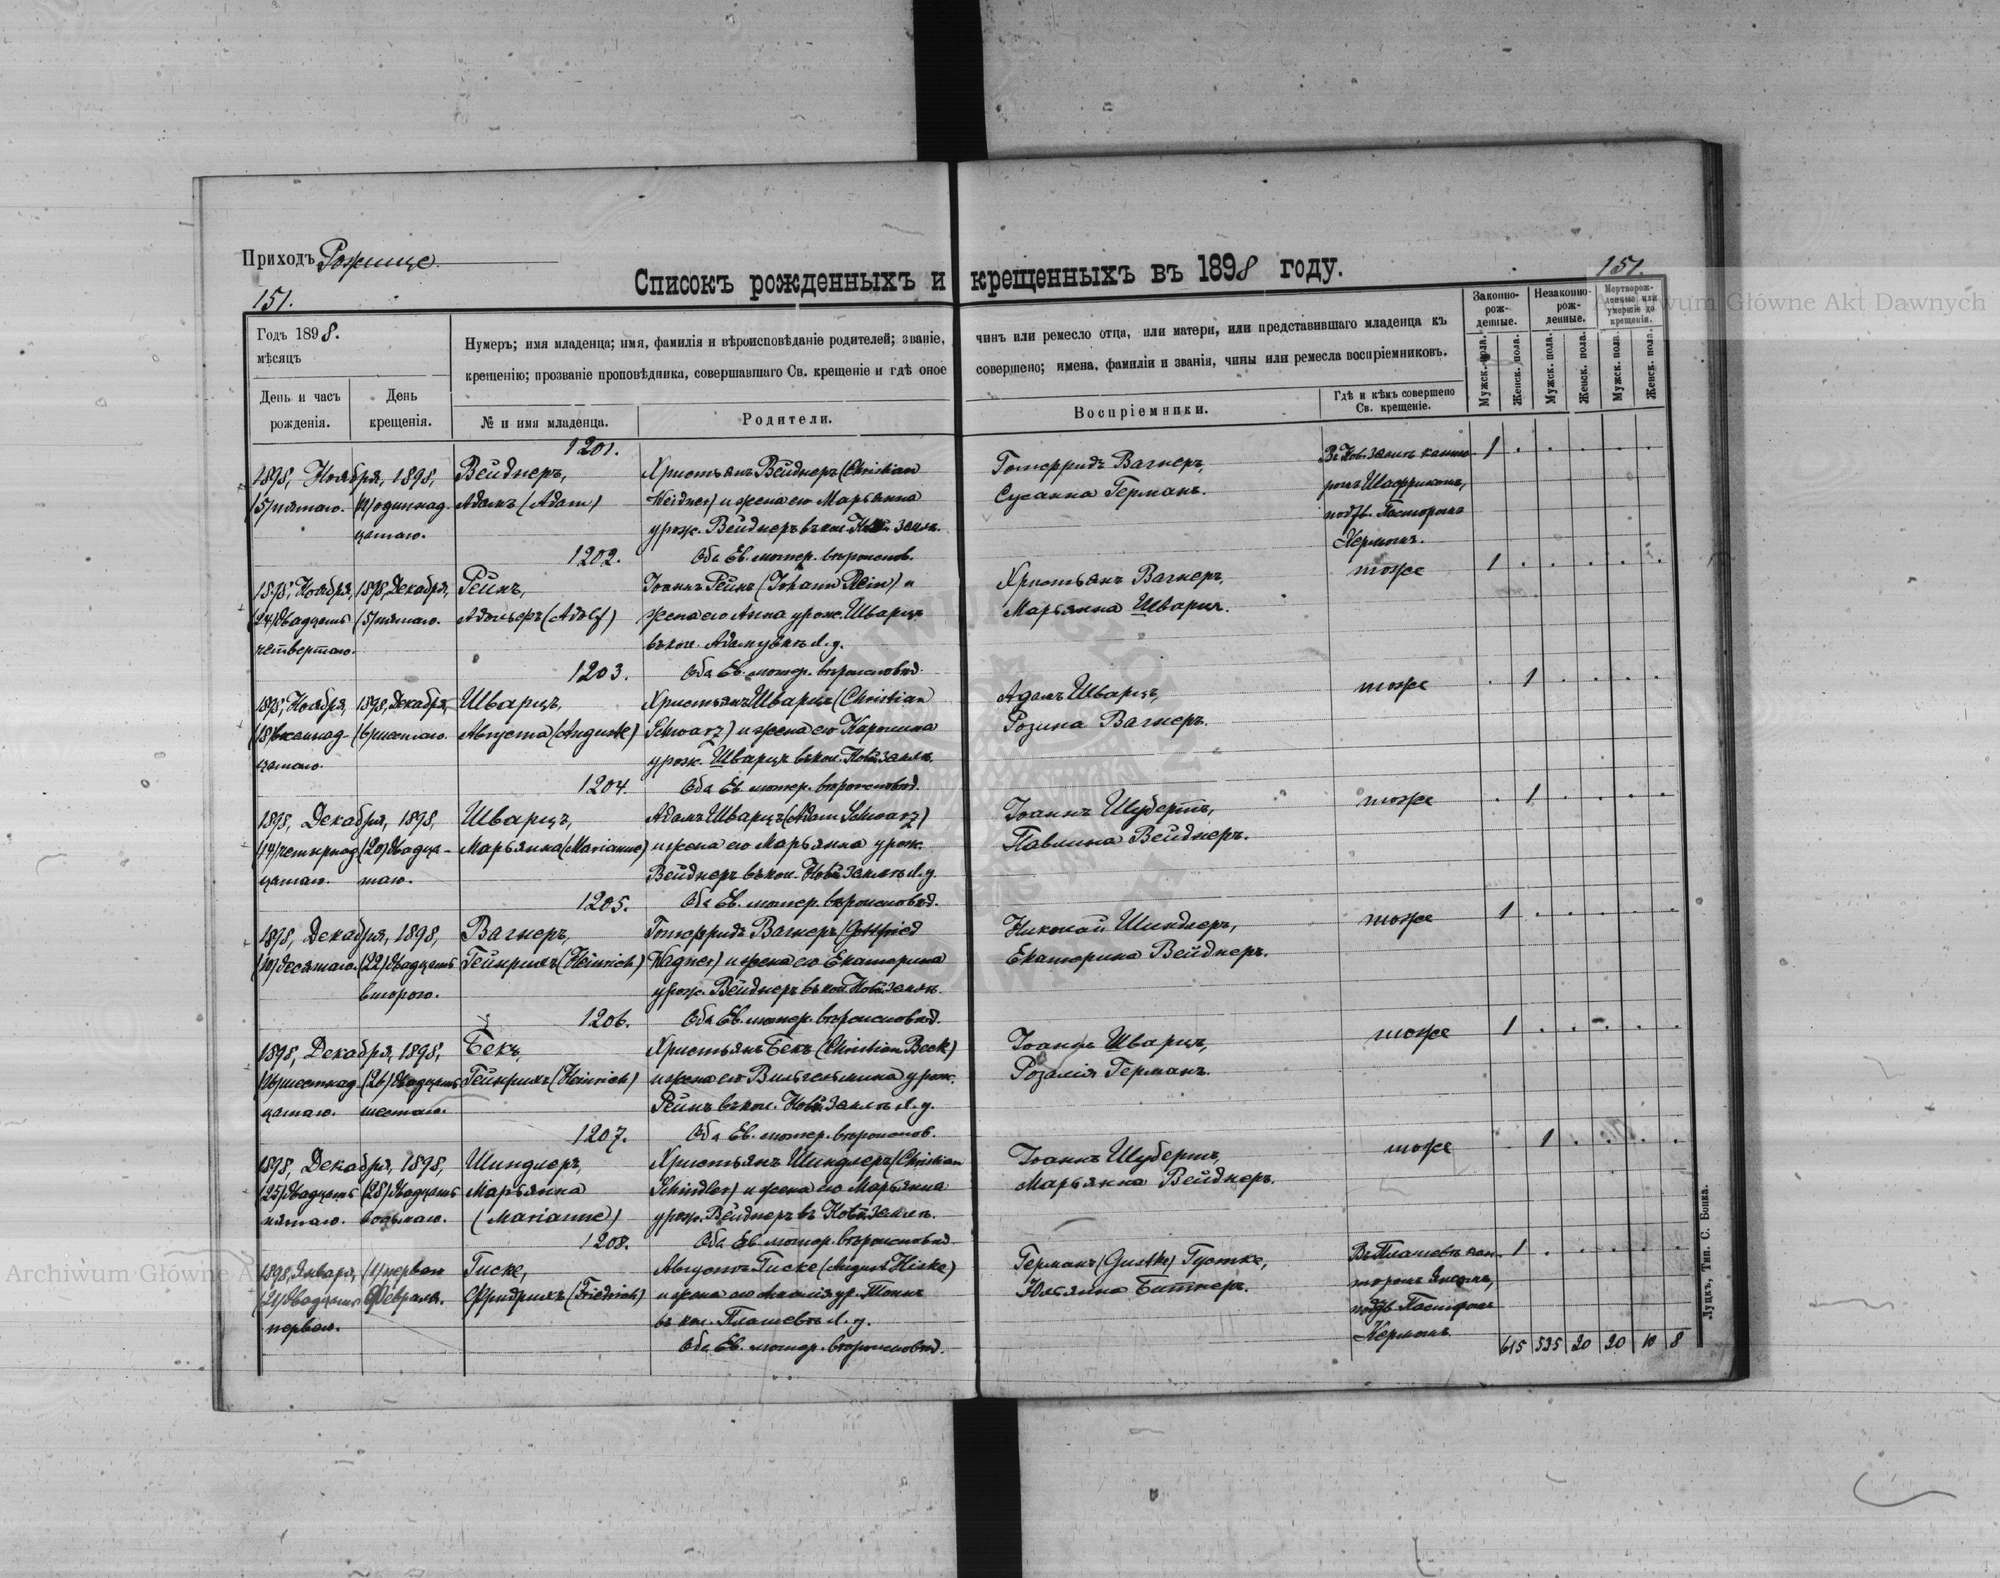 Приходъ Рожище
Списокъ рожденныхъ и крещенныхъ въ 1898 году.
151.
151.
Годъ 1898.
мѣсяцъ
День и часъ рожденія.
День крещенія.
Нумеръ; имя младенца; имя, фамилія и вѣроисповѣданіе родителей; званіе,
крещенію; прозваніе проповѣдника, совершавшаго Св. крещеніе и гдѣ оное
№ и имя младенца.
Родители.
чинъ или ремесло отца, или матери, или представившаго младенца къ
совершено; имена, фамиліи и званія, чины или ремесла воспріемниковъ.
Воспріемники.
Гдѣ и кѣмъ совершено
Св. крещеніе.
Законно-
рож-
денные.
Незаконно-
рож-
денные.
Мертворож-
денные или
умершіе до
крещенія.
Мужск. пола.
Женск. пола.
Мужск. пола.
Женск. пола.
Мужск. пола.
Женск. пола.
1201.
1898, Ноября, 1898,
(5) пятаго.
одиннад-
цатаго.
Вейднеръ,
Адамъ (Adam)
Христьянъ Вейднеръ (Christian
Weidner) и жена его Марьянна
урож. Вейднеръ въ кол. Нов. Земл.
Оба Ев. лютер. вѣроиспов.
Готфридъ Вагнеръ,
Сусанна Германъ.
Въ Нов. Земль канто-
ромъ
Пасторомъ
Керномъ.
1
1202.
1898, Ноября,
(24) двадцать
четвертаго.
1898, Декабря,
(5) пятаго.
Рейнъ,
Адольфъ (Adolf)
Іоаннъ Рейнъ (Johann Rein) и
жена его Анна урож. Шварцъ
въ кол. Л. у.
Оба Ев. лютер. вѣроисповѣд.
Христьянъ Вагнеръ,
Марьянна Шварцъ.
тоже
1
1203.
1898, Ноября,
(18) восемнад-
цатаго.
1898, Декабря,
(6) шестаго.
Шварцъ,
Августа (Auguste)
Христьянъ Шварцъ (Christian
Schwarz) и жена его Каролина
урож. Шварцъ въ кол. Нов. Земль.
Оба Ев. лютер. вѣроисповѣд.
Адамъ Шварцъ,
Розина Вагнеръ.
тоже
1
1204.
1898, Декабря, 1898,
(14) четырнад-
цатаго.
(20) двадца-
таго.
Шварцъ,
Марьянна (Marianne)
Адамъ Шварцъ (Adam Schwarz)
и жена его Марьянна урож.
Вейднеръ въ кол. Нов. Земль Л. у.
Оба Ев. лютер. вѣроисповѣд.
Іоаннъ Шубертъ,
Павлина Вейднеръ.
тоже
1
1205.
1898, Декабря, 1898,
(10) десятаго.
(22) двадцать
втораго.
Вагнеръ,
Гейнрихъ (Heinrich)
Готфридъ Вагнеръ (Gottfried
Wagner) и жена его Екатерина
урож. Вейднеръ въ кол. Нов. Земль.
Оба Ев. лютер. вѣроисповѣд.
Николай Шиндлеръ,
Екатерина Вейднеръ.
тоже
1
1206.
1898, Декабря, 1898,
(16) шестнад-
цатаго.
(26) двадцать
шестаго.
Бекъ,
Гейнрихъ (Heinrich)
Христьянъ Бекъ (Christian Beck)
и жена его Вильгельмина урож.
Рейнъ въ кол. Нов. Земль Л. у.
Оба Ев. лютер. вѣроиспов.
Іоаннъ Шварцъ,
Розалія Германъ.
тоже
1
1207.
1898, Декабря, 1898,
(25) двадцать
пятаго.
(28) двадцать
восьмаго.
Шиндлеръ,
Марьянна
(Marianne)
Христьянъ Шиндлеръ (Christian
Schindler) и жена его Марьянна
урож. Вейднеръ въ Нов. Земль.
Оба Ев. лютер. вѣроисповѣд.
Іоаннъ Шубертъ,
Марьянна Вейднеръ.
тоже
1
1208.
1898, Января,
(21) двадцать
перваго.
(1) перваго
Февраля.
Гиске,
Фридрихъ (Friedrich)
Августъ Гиске (August Hiske)
и жена его
въ кол. Л. у.
Оба Ев. лютер. вѣроисповѣд.
Германъ (Gustke) Густке,
Юльянна Битнеръ.
кан-
торомъ
Пасторомъ
Керномъ.
1
615 535 20 20 10 8
Луцкъ, Тип. С. Бонка.
Archiwum Główne Akt Dawnych
Archiwum Główne A